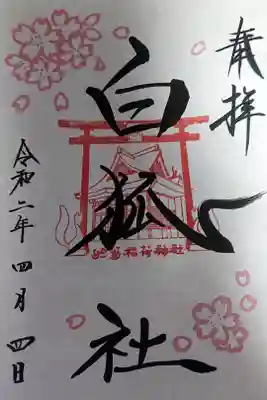 奉拝
白狐社
於菊稲荷神社
令和二年四月四日